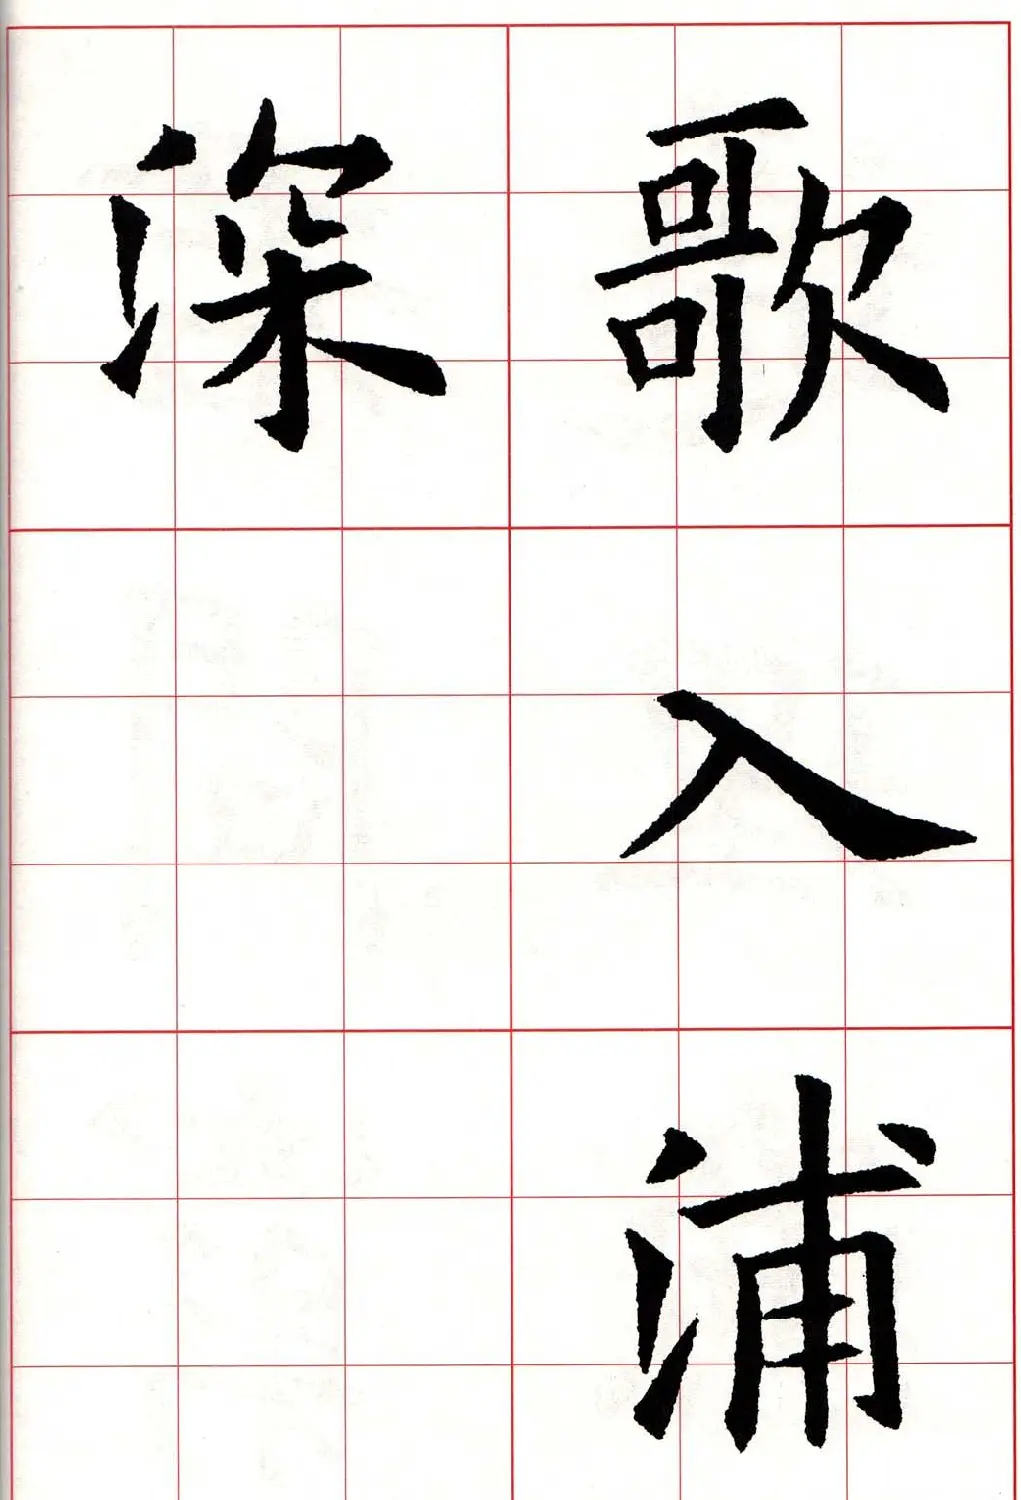 歌入浦
深